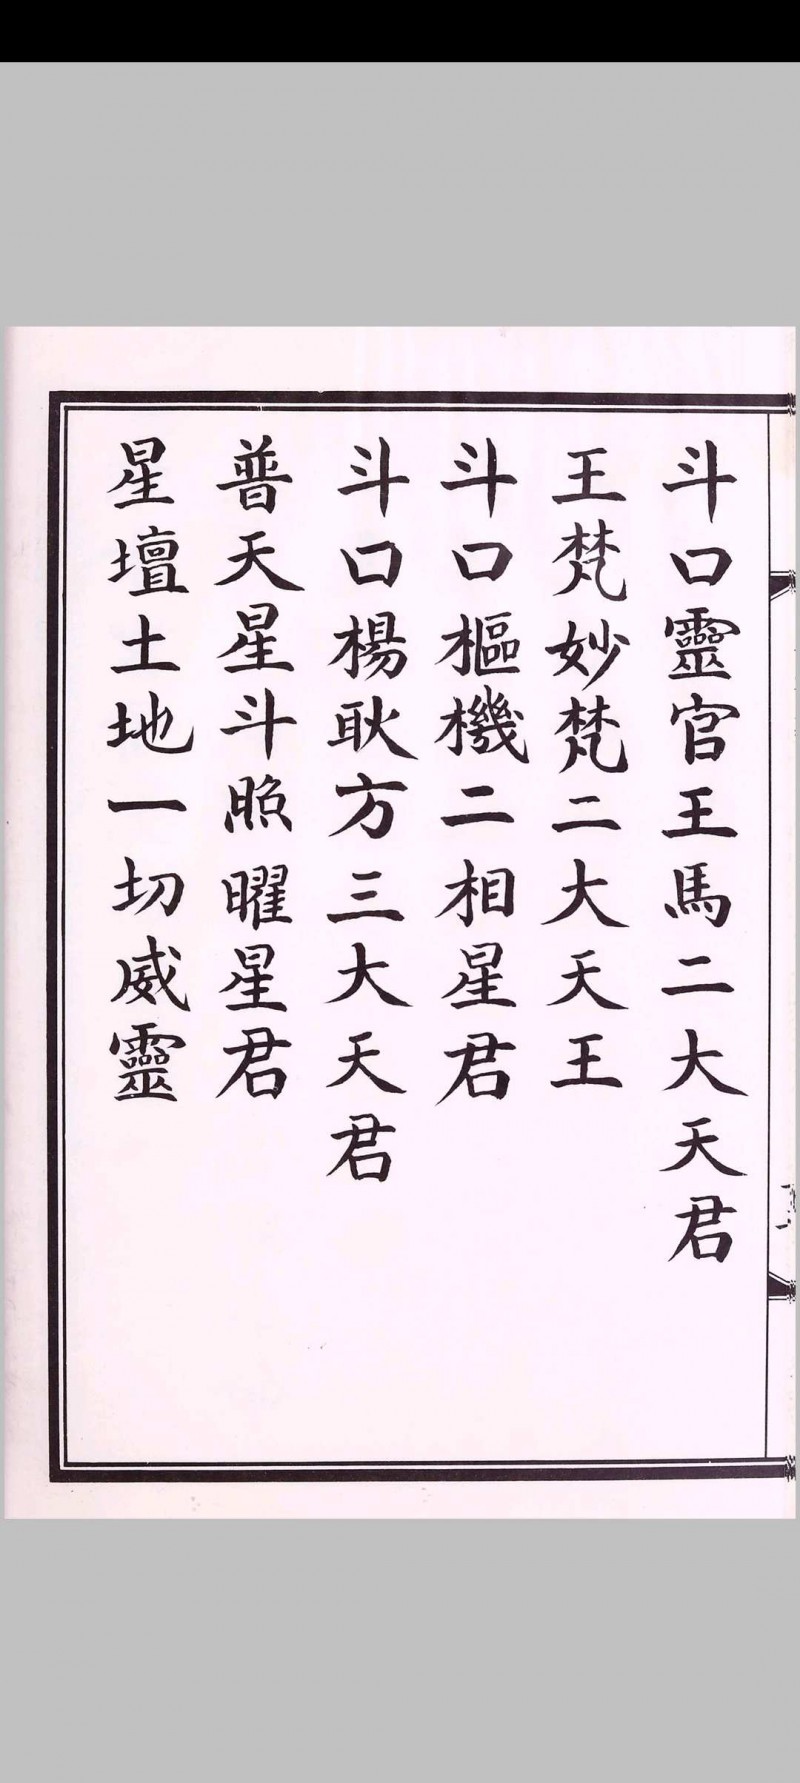 斗口靈官王馬二大天君
王梵妙梵二大天王
斗口樞機二相星君
斗口楊耿方三大天君
普天星斗照曜星君
星壇土地一切威靈